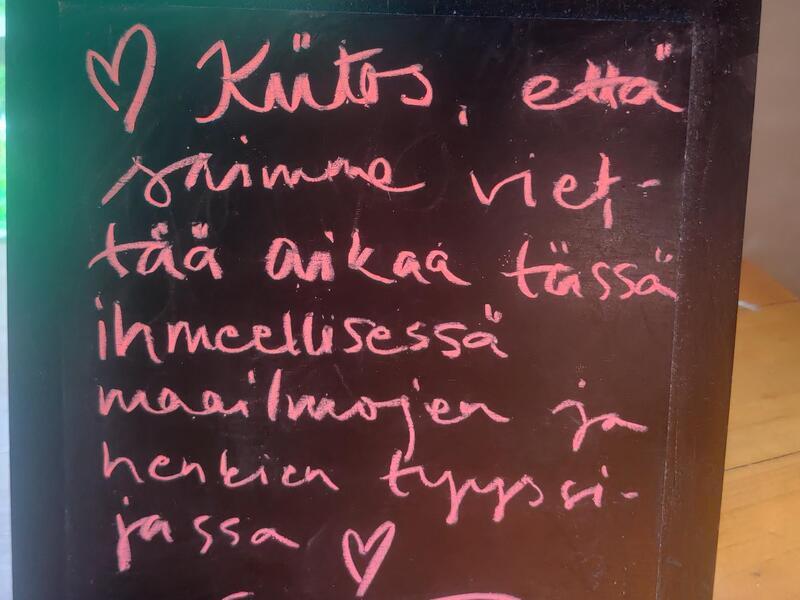 ♡ Kiitos, että
saimme viet-
tää aikaa tässä
ihmeellisessä
maailmojen ja
henkien tyyssi-
jassa ♡